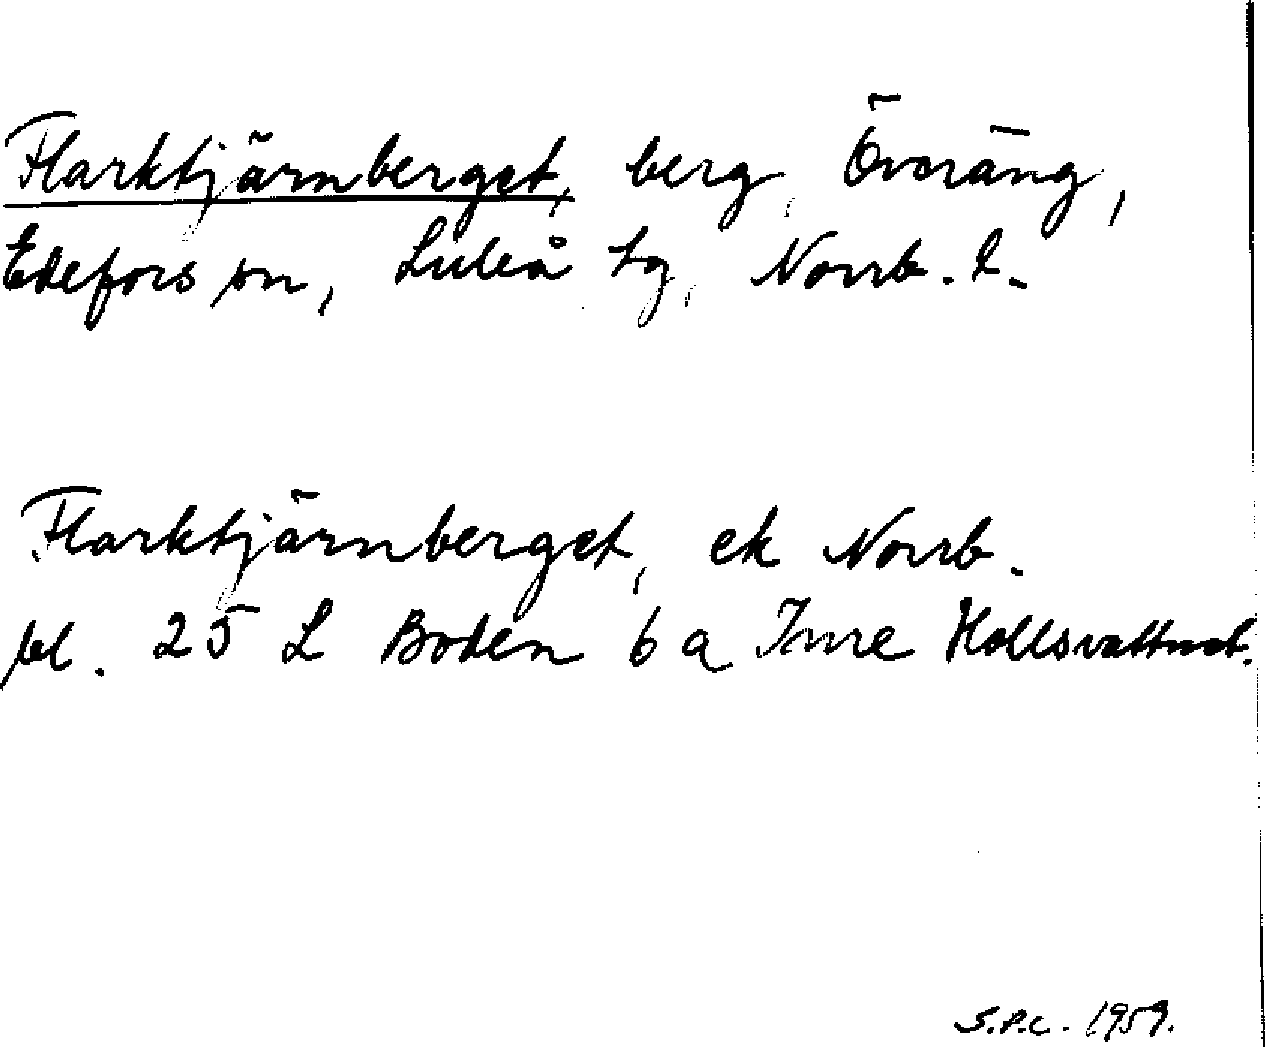 Flarktjärnberget, berg, Överäng,
Edefors sn, Luleå tg, Norrb. l.
Flarktjärnberget, ek Norrb.
bl. 25 L Boden 6 a Inre Hollsvattnet.
S.P.C. 1959.